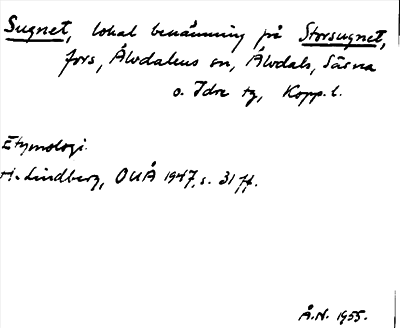 Sugnet, lokal benämning på Storsugnet,
fors, Älvdalens sn, Älvdals, Särna
o. Idre tg, Kopp. l.
Etymologi.
H. Lindberg, OUÅ 1947, s. 31 ff.
Å.H. 1955.